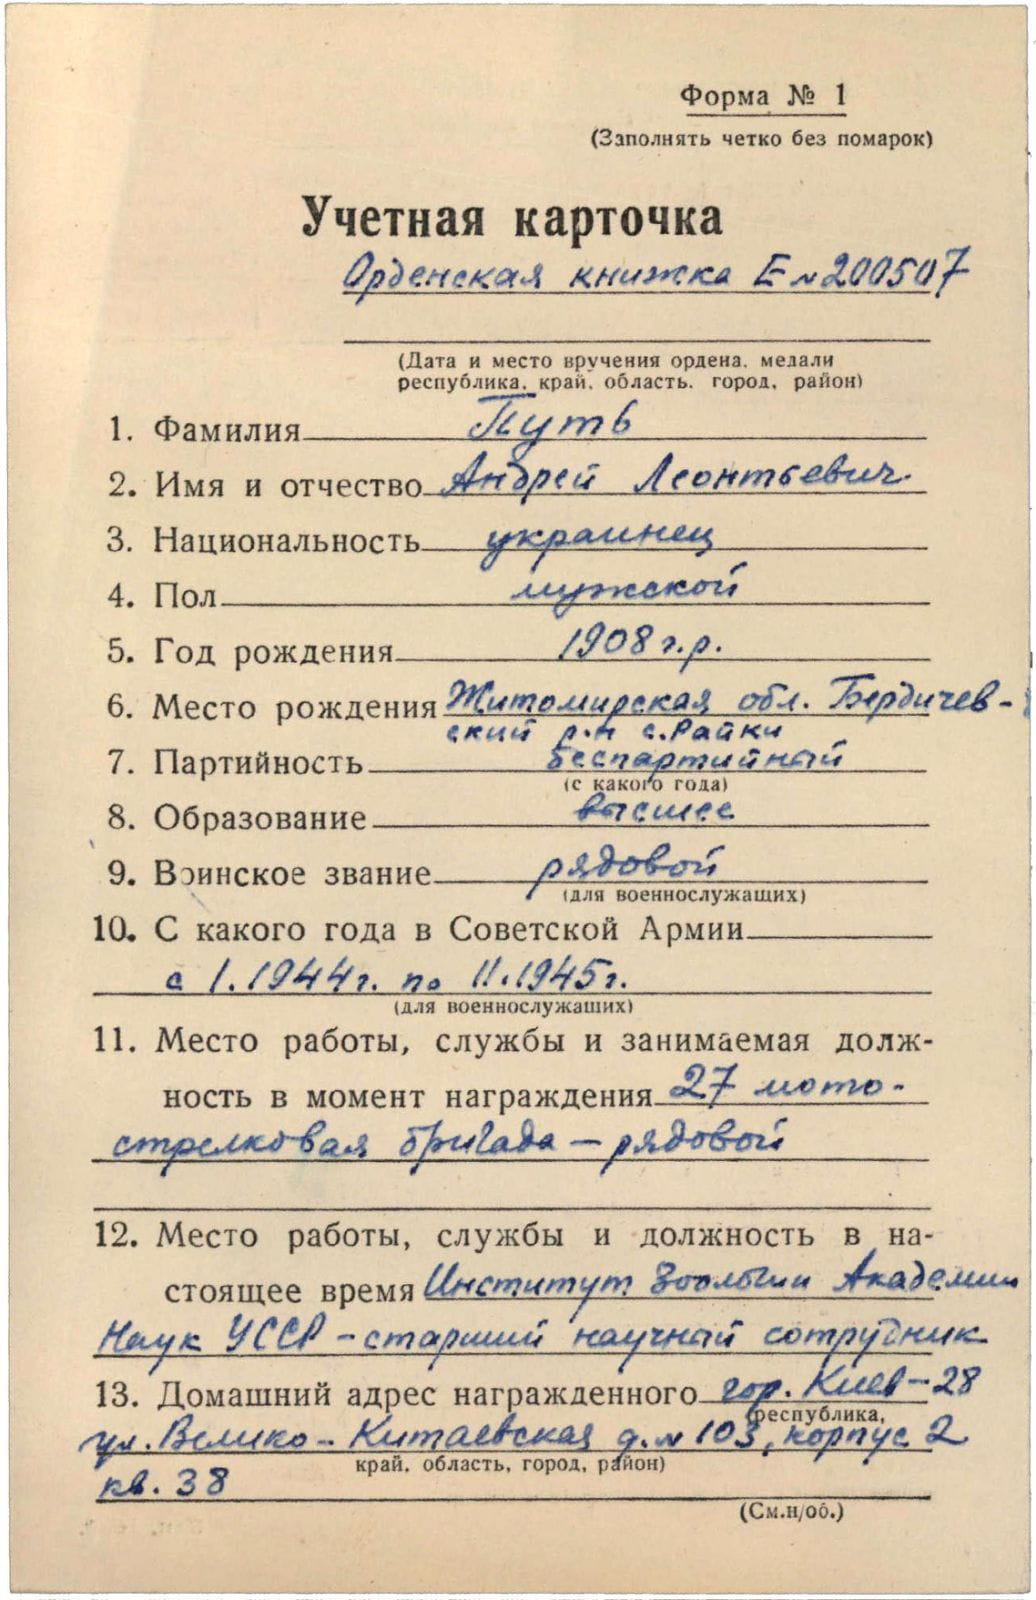 Форма № 1
(Заполнять четко без помарок)
Учетная карточка
Орденская книжка Е № 200507
(Дата и место вручения ордена, медали
республика, край, область, город, район)
1. Фамилия Путь
2. Имя и отчество Андрей Леонтьевич
3. Национальность украинец
4. Пол мужской
5. Год рождения 1908 г.р.
6. Место рождения Житомирская обл. Бердичев-
ский р-н с. Райки
7. Партийность беспартийный
(с какого года)
8. Образование высшее
9. Воинское звание рядовой
(для военнослужащих)
10. С какого года в Советской Армии
с I.1944г. по II.1945г.
(для военнослужащих)
11. Место работы, службы и занимаемая долж-
ность в момент награждения 27 мото-
стрелковая бригада – рядовой
12. Место работы, службы и должность в на-
стоящее время Институт Зоологии Академии
Наук УССР – старший научный сотрудник
13. Домашний адрес награжденного гор. Киев – 28
(республика,
ул. Велико-Китаевская д. № 103, корпус 2
край, область, город, район)
кв. 38
(См.н/об.)